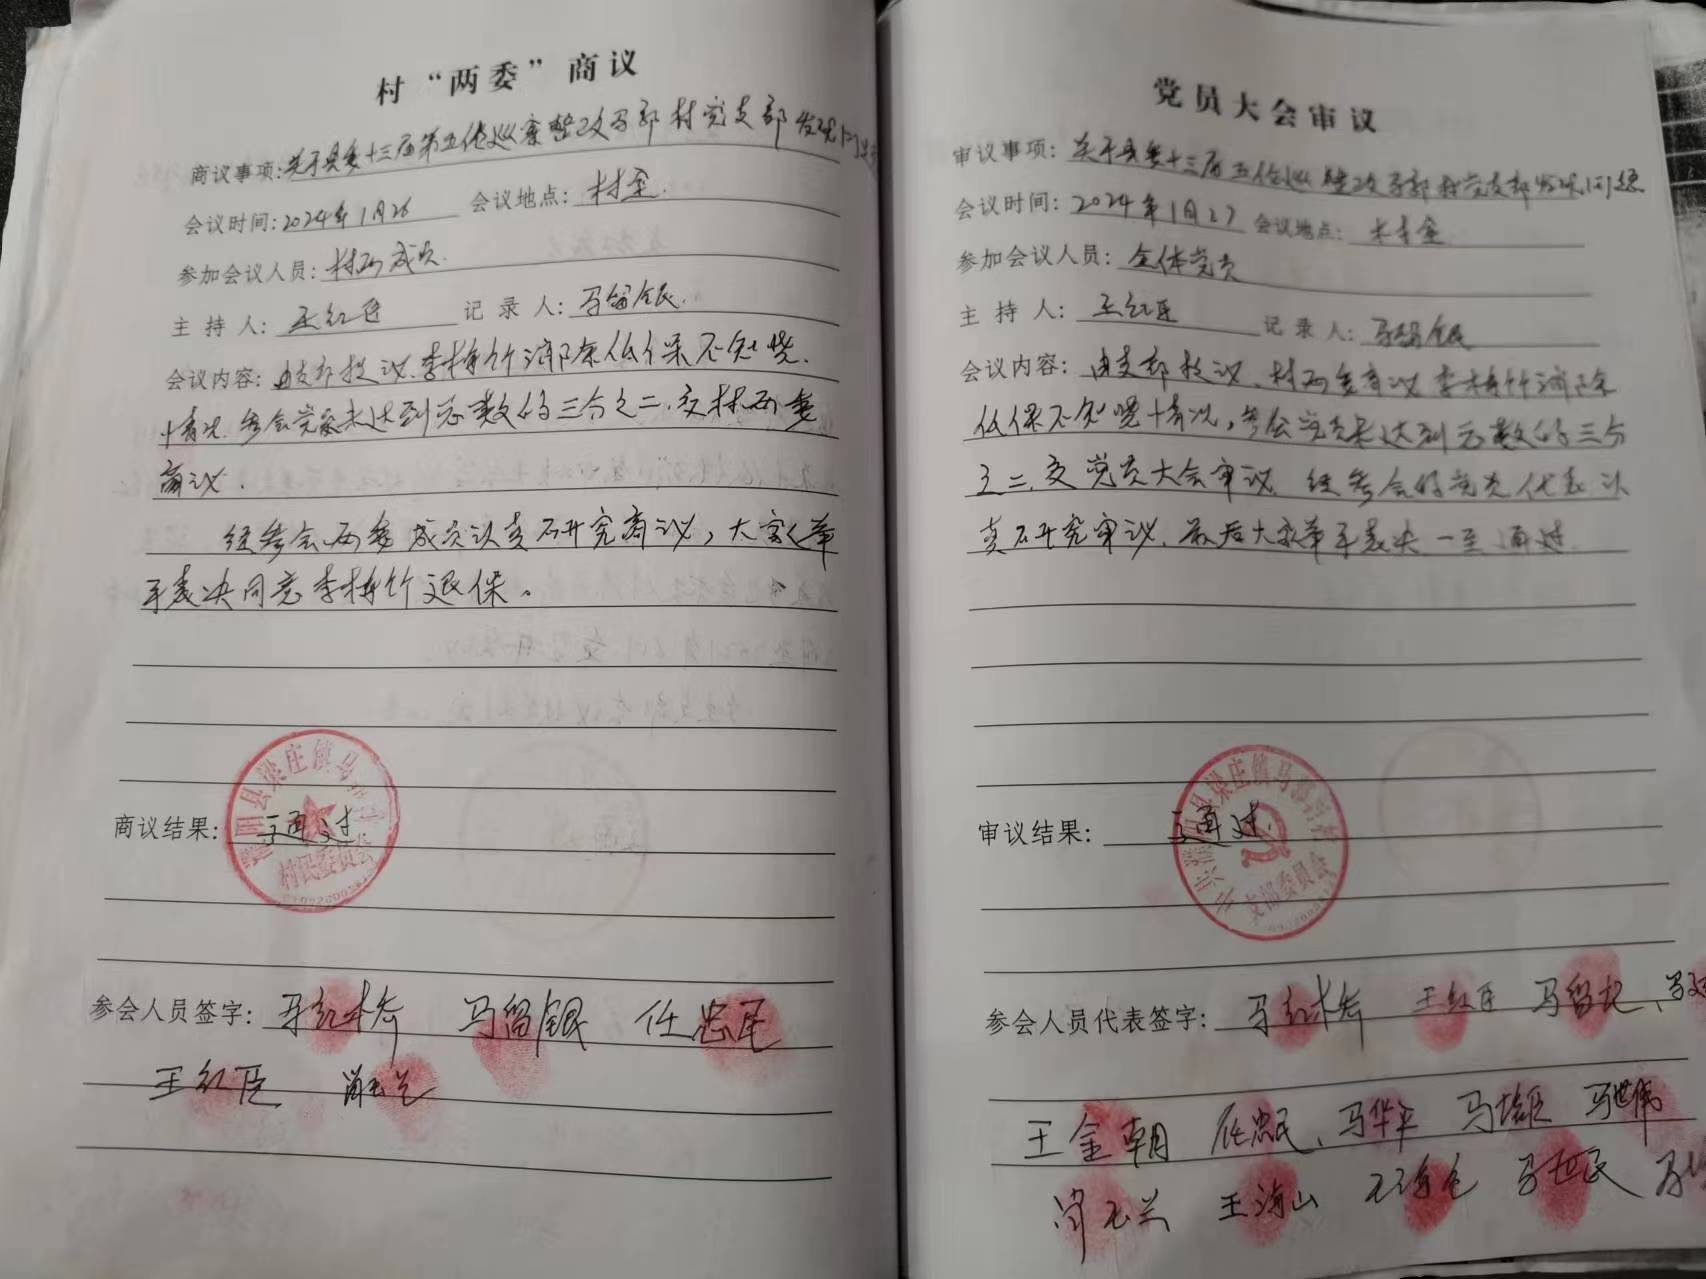 村“两委”商议
商议事项:关于县委十三届第五轮巡察整改马郭村党支部发现问
会议时间:2024年1月26 会议地点:村室.
参加会议人员:村两成员.
主持人:王红臣 记录人:马留银.
会议内容:由支部提议.李梅竹消除低保不知晓.
情况.参会党员达到总数的三分之二,交村两委
商议.
经参会两委成员认真研究商议,大家举
手表决同意李梅竹退保。
商议结果:通过
村民委员会
参会人员签字: 马红 马留银 任忠民
王红臣
党员大会审议
审议事项:关于县委十三届五轮巡 整改马郭村党支部发现问题
会议时间:2024年1月27 会议地点:村室
参加会议人员:全体党员
主持人:王红臣 记录人:马留银
会议内容:由支部提议,村两委商议李梅竹消除
低保不知晓情况,参会党员达到总数的三分
之二,交党员大会审议 经参会的党员代表认
真研究审议.最后大家举手表决一至通过.
审议结果:通过.
支部委员会
参会人员代表签字: 马红 王红臣 马留
王金朝 任忠民、马华平 马 马世伟
王海山 马 民